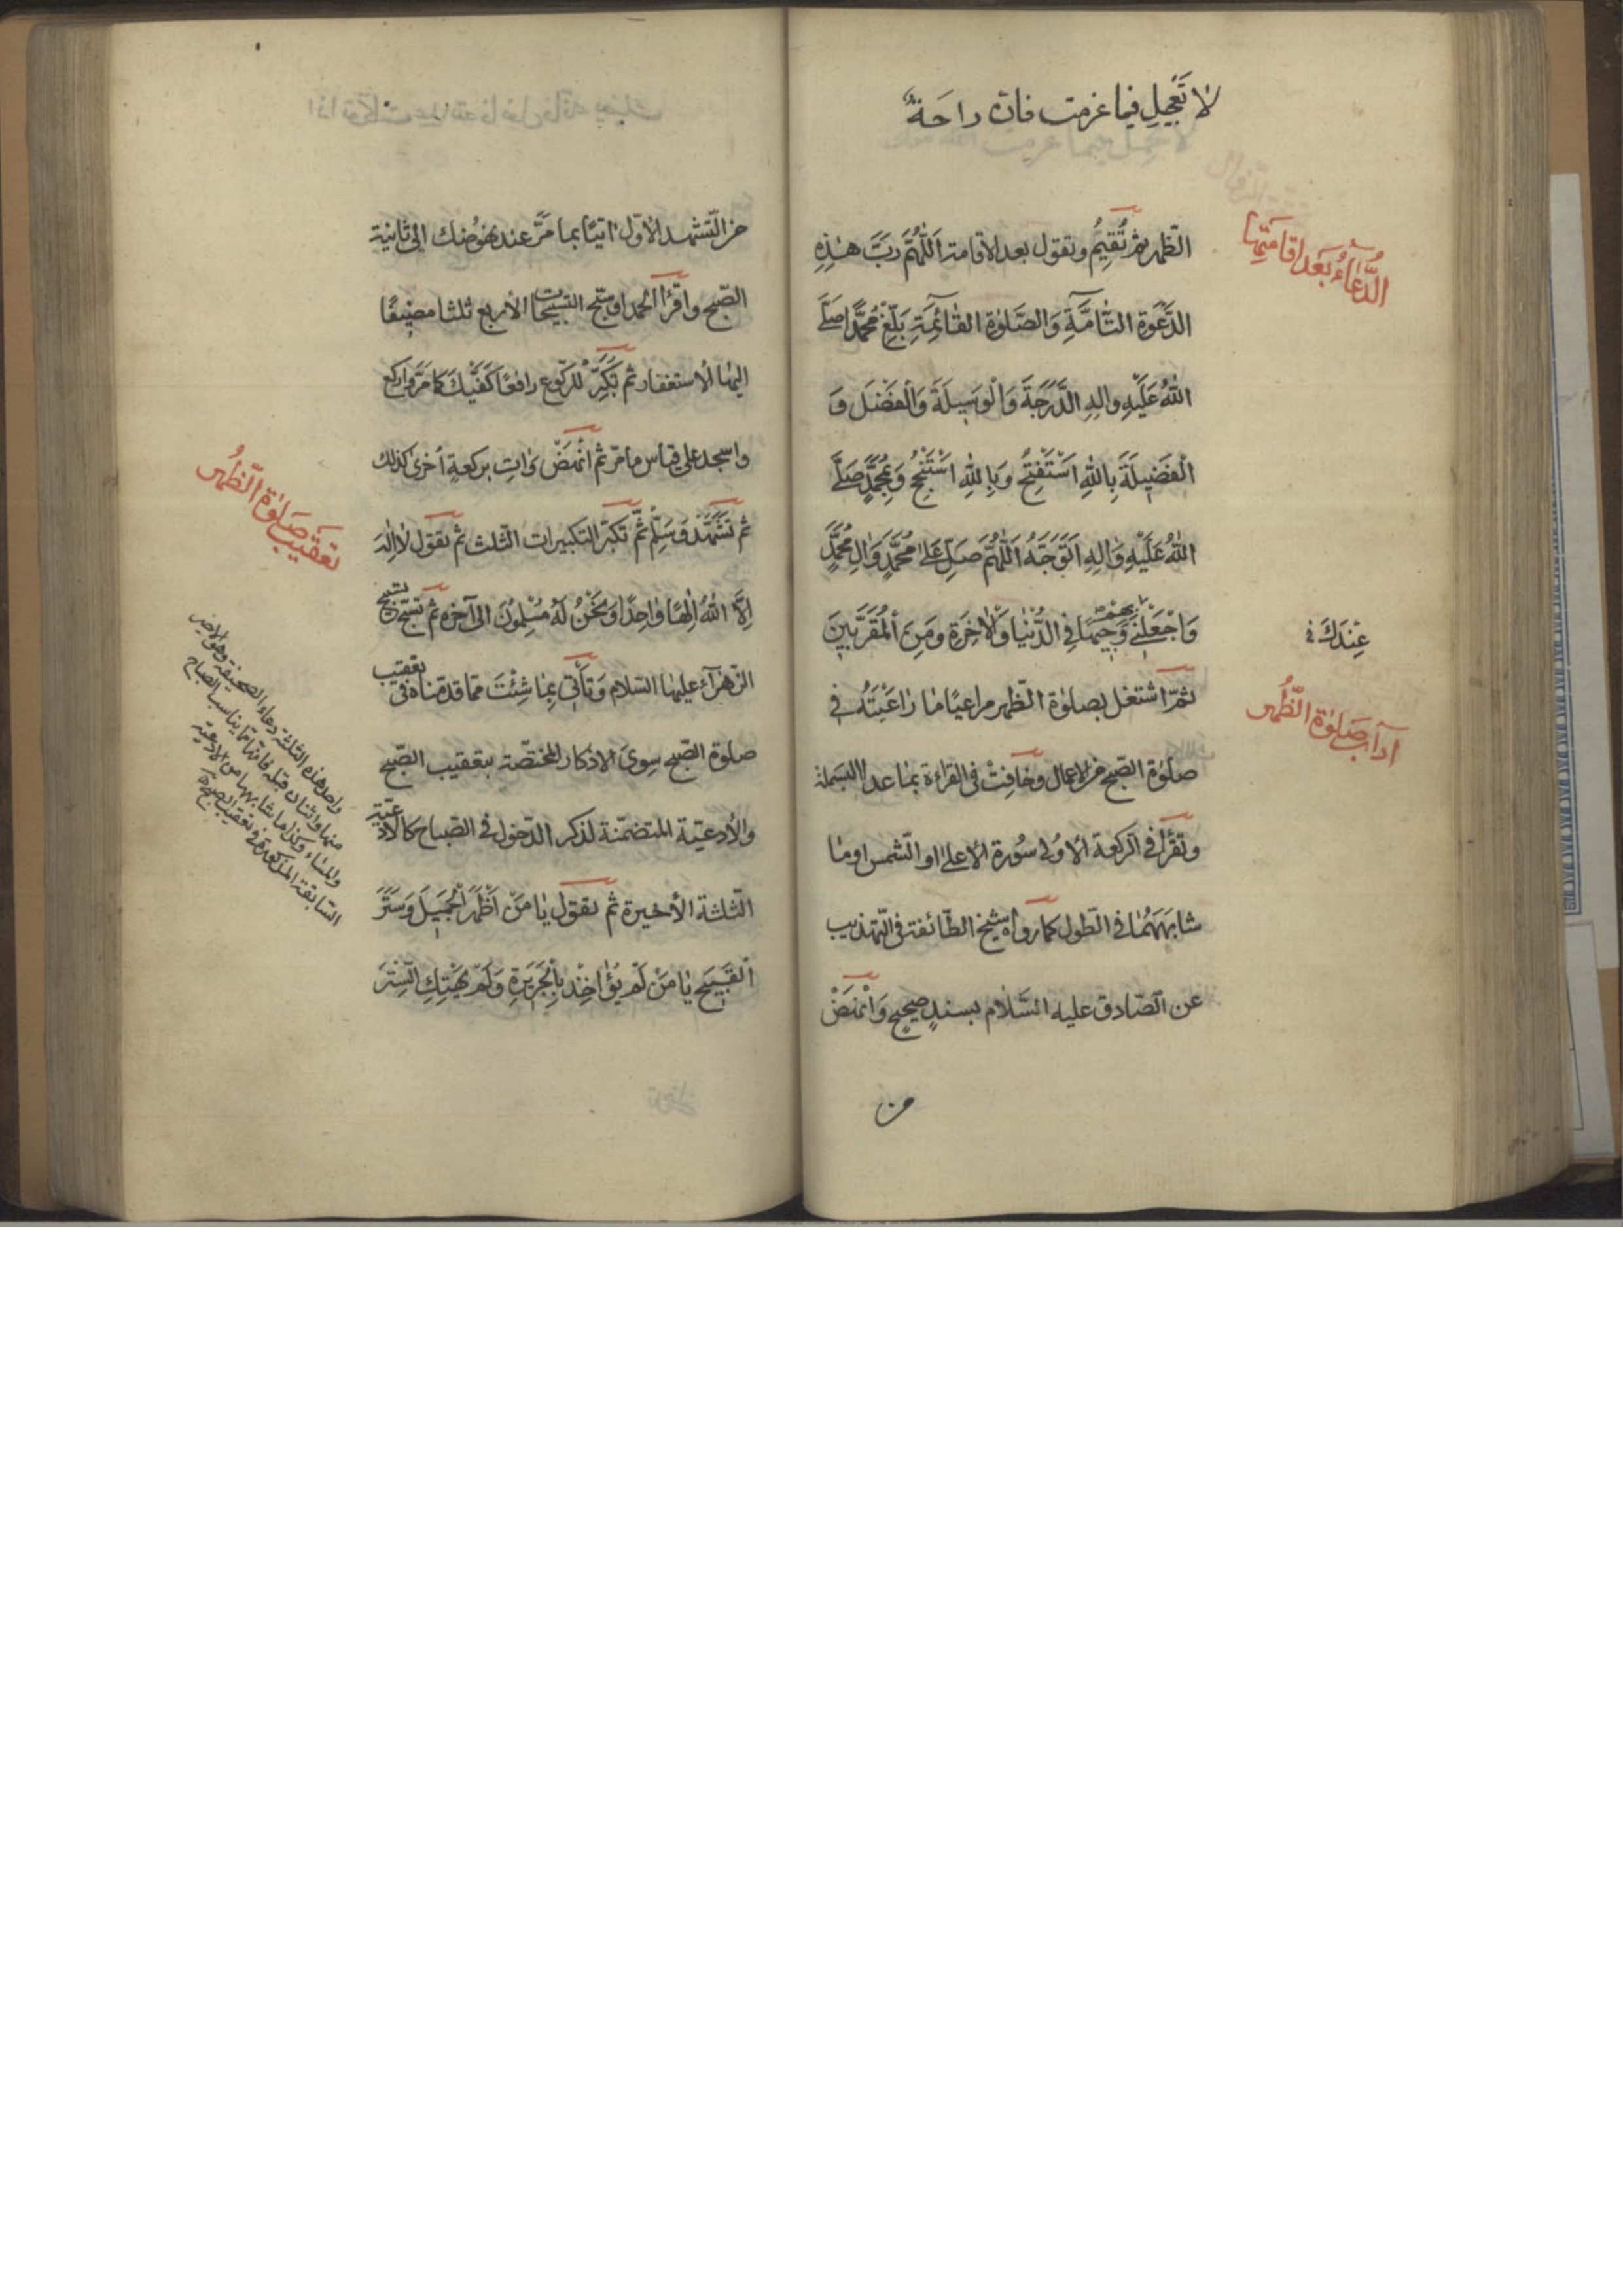 لا تَعْجَلِ فيما عزمت فان راحَةً
الظّهر ثم تُقِيمُ وتقول بعد الاقامة اَللّٰهُمَّ رَبَّ هٰذِهِ
الدُّعَاءُ بَعْدَ اِقَامَتِهَا
الدَّعْوَةِ التَّامَّةِ وَالصَّلوٰةِ القٰائِمَةِ بَلِّغْ مُحَمَّدًا صَلَّى
اللّٰهُ عَلَيْهِ وَالِهِ الدَّرَجَةَ وَالْوَسِيلَةَ وَالْفَضْلَ وَ
الْفَضِيلَةَ بِاللّٰهِ اَسْتَفْتِحُ وَبِاللّٰهِ اَسْتَنْجِحُ وَبِمُحَمَّدٍ صَلَّى
اللّٰهُ عَلَيْهِ وَالِهِ اَتَوَجَّهُ اَللّٰهُمَّ صَلِّ عَلىٰ مُحَمَّدٍ وَالِ مُحَمَّدٍ
وَاجْعَلْنِي بِهِمْ وَجِيهًا فِي الدُّنْيٰا وَالْاٰخِرَةِ وَمِنَ الْمُقَرَّبِينَ
عِنْدَكَ في
ثمّ اشتغل بصلوٰة الظّهر مراعيًا مٰا رٰاعَيْتَهُ في
آداب صَلوٰة الظُّهر
صلوٰة الصّبح من الاعمال وخافِتْ في القراءة بمٰا عدا البسملة
وتقرأ في الركعة الاوُلى سُورة الاعلى او الشّمس او مٰا
شابَهَهُمٰا في الطّول كما رواه شيخ الطّائفة في التّهذيب
عن الصّادق عليه السَّلام بسندٍ صحيحٍ وَانْهَضْ
من
من التّشهد الاوّل اتيًا بما مَرَّ عند نهوُضك الى ثانية
الصّبح واقرَأ الحمد او سَبّح التسبيحات الأربع ثلثا مضيفًا
اليهٰا الاستغفار ثم تُكَبِّرْ للركوع رافعًا كَفَّيْكَ كما مَرّ واركع
واسجد على قياس ما مرّ ثم انْهَضْ وَاتِ بركعةٍ أخرىٰ كذلك
تعقيب صَلوٰة الظّهر
ثم تَشَهَّدْ وَسَلِّمْ ثمَّ تكبّر التكبيرات الثّلث ثم تقول لا اِلٰهَ
اِلَّا اللّٰهُ اِلٰهًا وٰاحِدًا وَنَحْنُ لَهُ مُسْلِمُونَ الى آخره ثم تسبّح تسبيح
الزّهرآء عليهٰا السّلام وَتَأتي بِمٰا شِئْتَ ممّا قدّمناه في تعقيب
صلوة الصّبح سِوىَ الاذكار المختصّة بتعقيب الصّبح
والأدعيّة المتضمّنة لذكر الدّخول في الصّباح كالادعيّة
الثّلثة الأخيرة ثم تقول يٰا مَنْ اَظْهَرَ الْجَمِيلَ وَسَتَرَ
الْقَبِيحَ يٰا مَنْ لَمْ يُؤٰاخِذْ بِالْجَرِيرَةِ وَلَمْ يَهْتِكِ السِّتْرَ
واحد هذه الثلثة دعاء الصحيفة وهو الاخير
منها واثنان قبله فانّها ممّا يناسب الصباح
والمساء وكذا ما شابهها من الادعيّة
السّابقة المذكورة في تعقيب الصبح